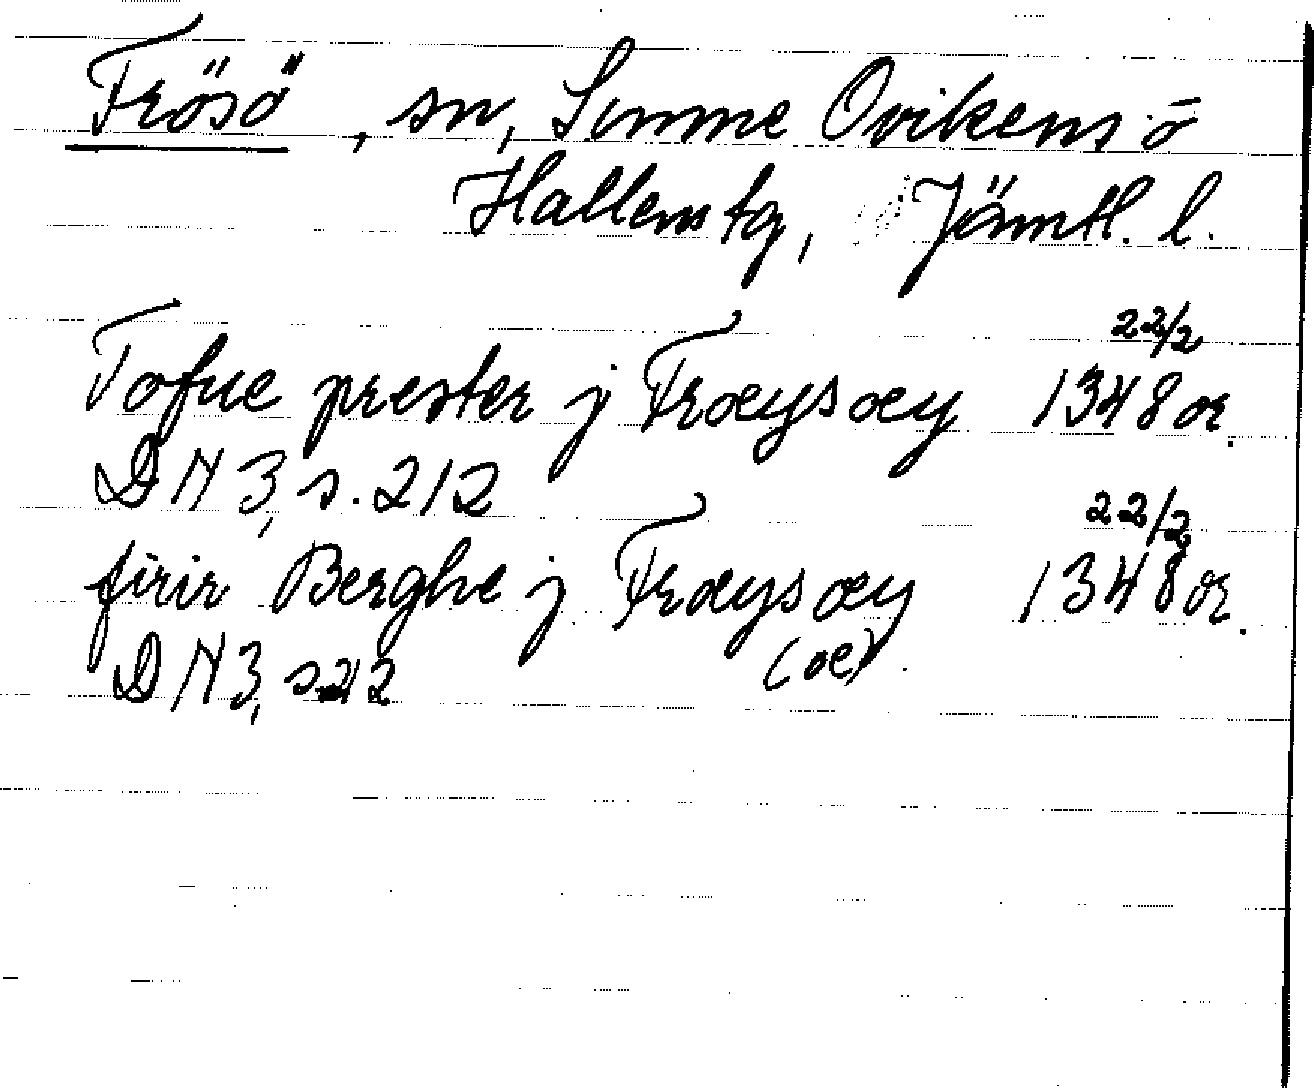 Frösö, sn, Sunne Ovikens o
Hallens tg, Jämtl. l.
22/2
Tofue prester j Frœysœy 1348 or.
DN 3, s. 212
22/2
firir Berghe j Frœysœy 1348 or.
DN 3, s 212 (œ)